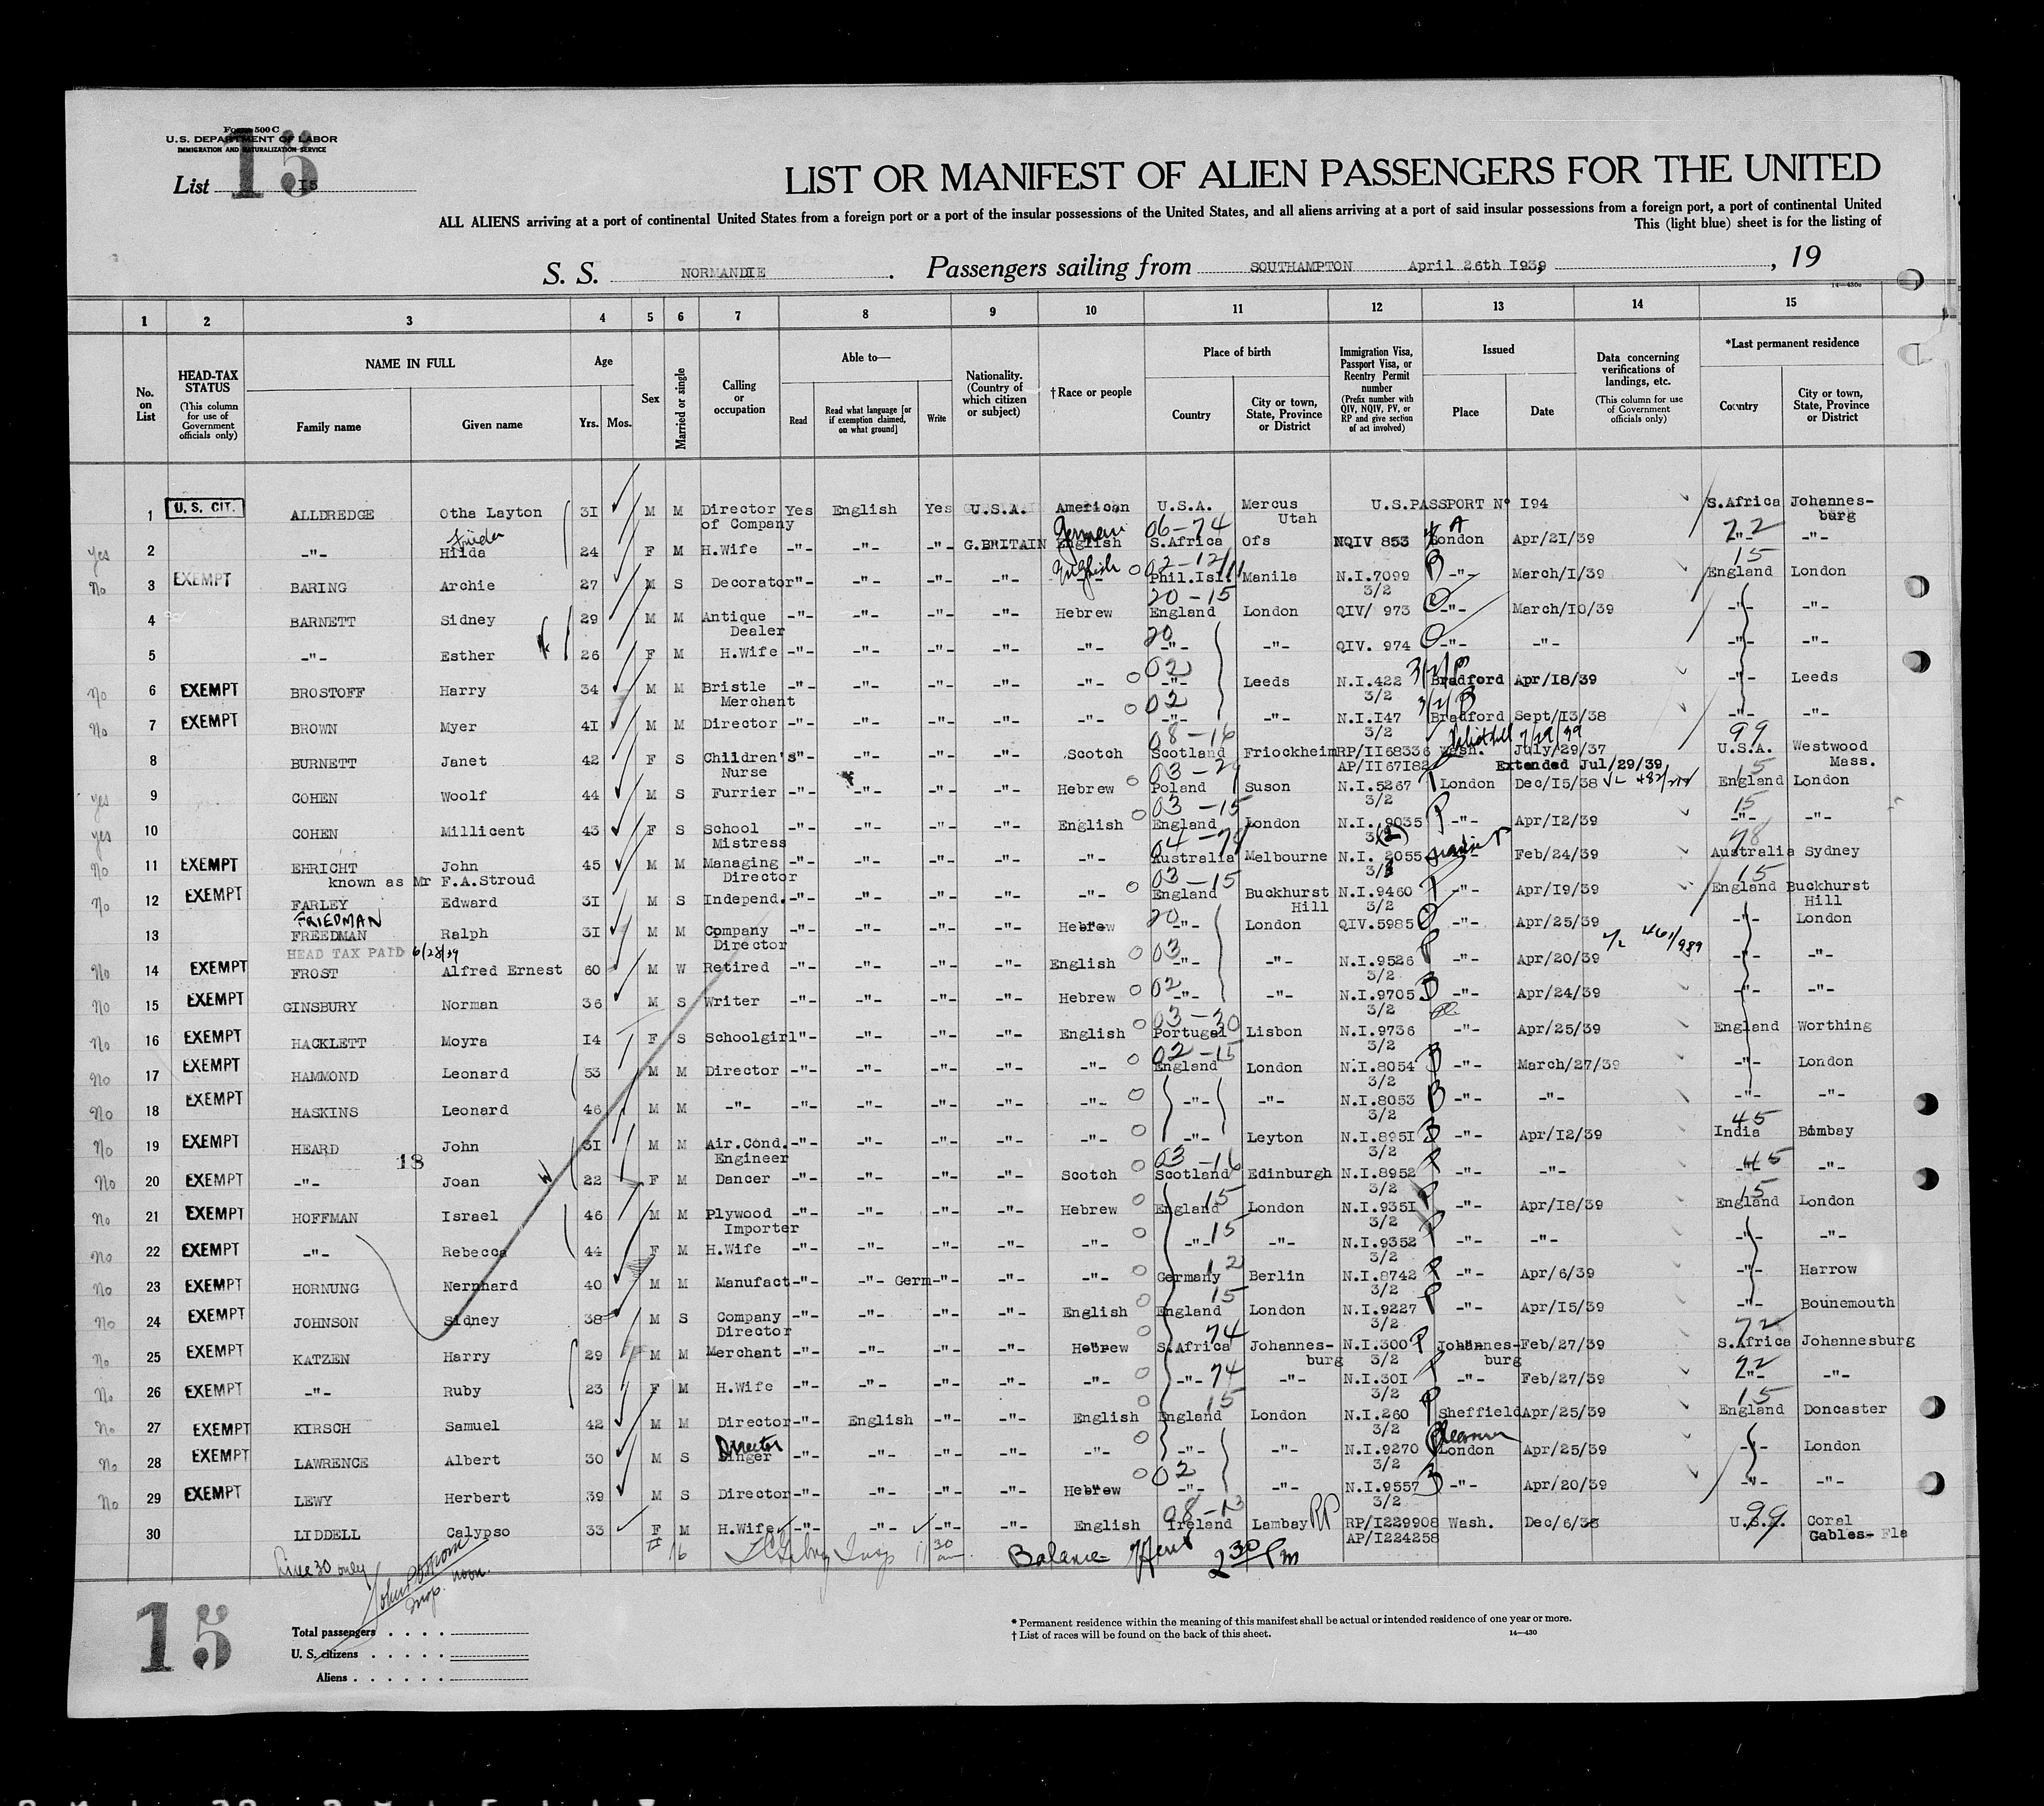 Form 500 C
U.S. DEPARTMENT OF LABOR
IMMIGRATION AND NATURALIZATION SERVICE
List 15
15
LIST OR MANIFEST OF ALIEN PASSENGERS FOR THE UNITED
ALL ALIENS arriving at a port of continental United States from a foreign port or a port of the insular possessions of the United States, and all aliens arriving at a port of said insular possessions from a foreign port, a port of continental United
This (light blue) sheet is for the listing of
S. S. NORMANDIE. Passengers sailing from SOUTHAMPTON April 26th 1939, 19
14—430c
1 2 3 4 5 6 7 8 9 10 11 12 13 14 15
No. on List
HEAD-TAX STATUS (This column for use of Government officials only)
NAME IN FULL Family name Given name
Age Yrs. Mos.
Sex
Married or single
Calling or occupation
Able to— Read Read what language [or if exemption claimed, on what ground] Write
Nationality. (Country of which citizen or subject)
†Race or people
Place of birth Country City or town, State, Province or District
Immigration Visa, Passport Visa, or Reentry Permit number (Prefix number with QIV, NQIV, PV, or RP and give section of act involved)
Issued Place Date
Data concerning verifications of landings, etc. (This column for use of Government officials only)
*Last permanent residence Country City or town, State, Province or District
1 U. S. CIT. ALLDREDGE Otha Layton 31 M M Director of Company Yes English Yes U.S.A. American U.S.A. Mercus Utah U.S.PASSPORT Nº 194 S.Africa Johannesburg
Yes 2 -"- Frieda Hilda 24 F M H.Wife -"- -"- -"- G.BRITAIN German English 06-74 S.Africa Ofs NQIV 853 London Apr/21/39 72 -"- -"-
No 3 EXEMPT BARING Archie 27 M S Decorator -"- -"- -"- -"- English -"- Phil.Isl. Manila N.I.7099 3/2 -"- March/1/39 15 England London
4 BARNETT Sidney 29 M M Antique Dealer -"- -"- -"- -"- Hebrew 20-15 England London QIV/ 973 -"- March/10/39 -"- -"-
5 -"- Esther 26 F M H.Wife -"- -"- -"- -"- -"- 20 -"- -"- QIV. 974 -"- -"- -"- -"-
No 6 EXEMPT BROSTOFF Harry 34 M M Bristle Merchant -"- -"- -"- -"- -"- 02 -"- Leeds N.I.422 3/2 Bradford Apr/18/39 -"- Leeds
No 7 EXEMPT BROWN Myer 41 M M Director -"- -"- -"- -"- -"- 02 -"- -"- N.I.147 3/2 Bradford Sept/13/38 -"- -"-
8 BURNETT Janet 42 F S Children's Nurse -"- -"- -"- -"- Scotch 08-16 Scotland Friockheim RP/1168336 AP/1167182 Wash. July/29/37 Extended Jul/29/39 99 U.S.A. Westwood Mass.
yes 9 COHEN Woolf 44 M S Furrier -"- -"- -"- -"- Hebrew Poland Suson N.I.5267 3/2 London Dec/15/38 15 England London
yes 10 COHEN Millicent 43 F S School Mistress -"- -"- -"- -"- English 03-15 England London N.I. 9035 -"- Apr/12/39 15 -"- -"-
No 11 EXEMPT EHRICHT John known as Mr F.A.Stroud 45 M M Managing Director -"- -"- -"- -"- -"- 04-78 Australia Melbourne N.I. 2055 -"- Feb/24/39 78 Australia Sydney
No 12 EXEMPT FARLEY Edward 31 M S Independ. -"- -"- -"- -"- -"- 03-15 England Buckhurst Hill N.I.9460 3/2 -"- Apr/19/39 15 England Buckhurst Hill
13 FRIEDMAN FREEDMAN Ralph 31 M M Company Director -"- -"- -"- -"- Hebrew 20 -"- London QIV.5985 -"- Apr/25/39 -"- London
HEAD TAX PAID 6/28/39
No 14 EXEMPT FROST Alfred Ernest 60 M W Retired -"- -"- -"- -"- English 03 -"- -"- N.I.9526 3/2 -"- Apr/20/39 -"- -"-
No 15 EXEMPT GINSBURY Norman 36 M S Writer -"- -"- -"- -"- Hebrew 02 -"- -"- N.I.9705 3/2 -"- Apr/24/39 -"- -"-
No 16 EXEMPT HACKLETT Moyra 14 F S Schoolgirl -"- -"- -"- -"- English 03-30 Portugel Lisbon N.I.9736 3/2 -"- Apr/25/39 England Worthing
No 17 EXEMPT HAMMOND Leonard 53 M M Director -"- -"- -"- -"- -"- 02-15 England London N.I.8054 3/2 -"- March/27/39 -"- London
No 18 EXEMPT HASKINS Leonard 46 M M -"- -"- -"- -"- -"- -"- -"- -"- N.I.8053 3/2 -"- -"- -"- -"-
No 19 EXEMPT HEARD John 31 M M Air.Cond. Engineer -"- -"- -"- -"- -"- -"- Leyton N.I.8951 3/2 -"- Apr/12/39 45 India Bombay
18
No 20 EXEMPT -"- Joan 22 F M Dancer -"- -"- -"- -"- Scotch 03-16 Scotland Edinburgh N.I.8952 3/2 -"- -"- 45 -"- -"-
No 21 EXEMPT HOFFMAN Israel 46 M M Plywood Importer -"- -"- -"- -"- Hebrew 15 England London N.I.9351 3/2 -"- Apr/18/39 15 England London
No 22 EXEMPT -"- Rebecca 44 F M H.Wife -"- -"- -"- -"- -"- 15 -"- -"- N.I.9352 3/2 -"- -"- -"- -"-
No 23 EXEMPT HORNUNG Nernhard 40 M M Manufact -"- -"- Germ -"- -"- -"- 12 Germany Berlin N.I.8742 3/2 -"- Apr/6/39 -"- Harrow
No 24 EXEMPT JOHNSON Sidney 38 M S Company Director -"- -"- -"- -"- English 15 England London N.I.9227 3/2 -"- Apr/15/39 -"- Bounemouth
No 25 EXEMPT KATZEN Harry 29 M M Merchant -"- -"- -"- -"- Hebrew 74 S.Africa Johannesburg N.I.300 3/2 Johannesburg Feb/27/39 72 S.Africa Johannesburg
No 26 EXEMPT -"- Ruby 23 F M H.Wife -"- -"- -"- -"- -"- 74 -"- -"- N.I.301 3/2 -"- Feb/27/39 72 -"- -"-
No 27 EXEMPT KIRSCH Samuel 42 M M Director -"- English -"- -"- English 15 England London N.I.260 3/2 Sheffield Apr/25/39 15 England Doncaster
No 28 EXEMPT LAWRENCE Albert 30 M S Director Singer -"- -"- -"- -"- -"- -"- -"- N.I.9270 3/2 London Apr/25/39 -"- London
No 29 EXEMPT LEWY Herbert 39 M S Director -"- -"- -"- -"- Hebrew 02 -"- -"- N.I.9557 3/2 -"- Apr/20/39 -"- -"-
30 LIDDELL Calypso 33 F M H.Wife -"- -"- -"- -"- English Ireland Lambay RP RP/1229908 AP/1224258 Wash. Dec/6/38 99 U.S.A. Coral Gables- Fla
Line 30 only
Insp. noon.
Insp 11 30 am
Balance 2 30 Pm
15
Total passengers
U. S. citizens
Aliens
* Permanent residence within the meaning of this manifest shall be actual or intended residence of one year or more.
† List of races will be found on the back of this sheet.
14—430